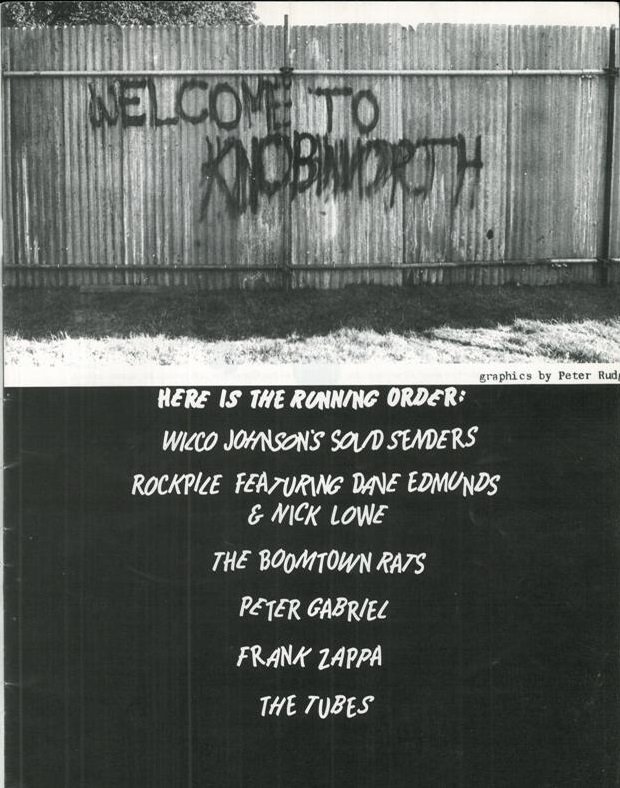 WELCOME TO
KNOBWORTH
graphics by Peter Rudg
HERE IS THE RUNNING ORDER:
WILCO JOHNSON'S SOLID SENDERS
ROCKPILE FEATURING DAVE EDMUNDS
& NICK LOWE
THE BOOMTOWN RATS
PETER GABRIEL
FRANK ZAPPA
THE TUBES